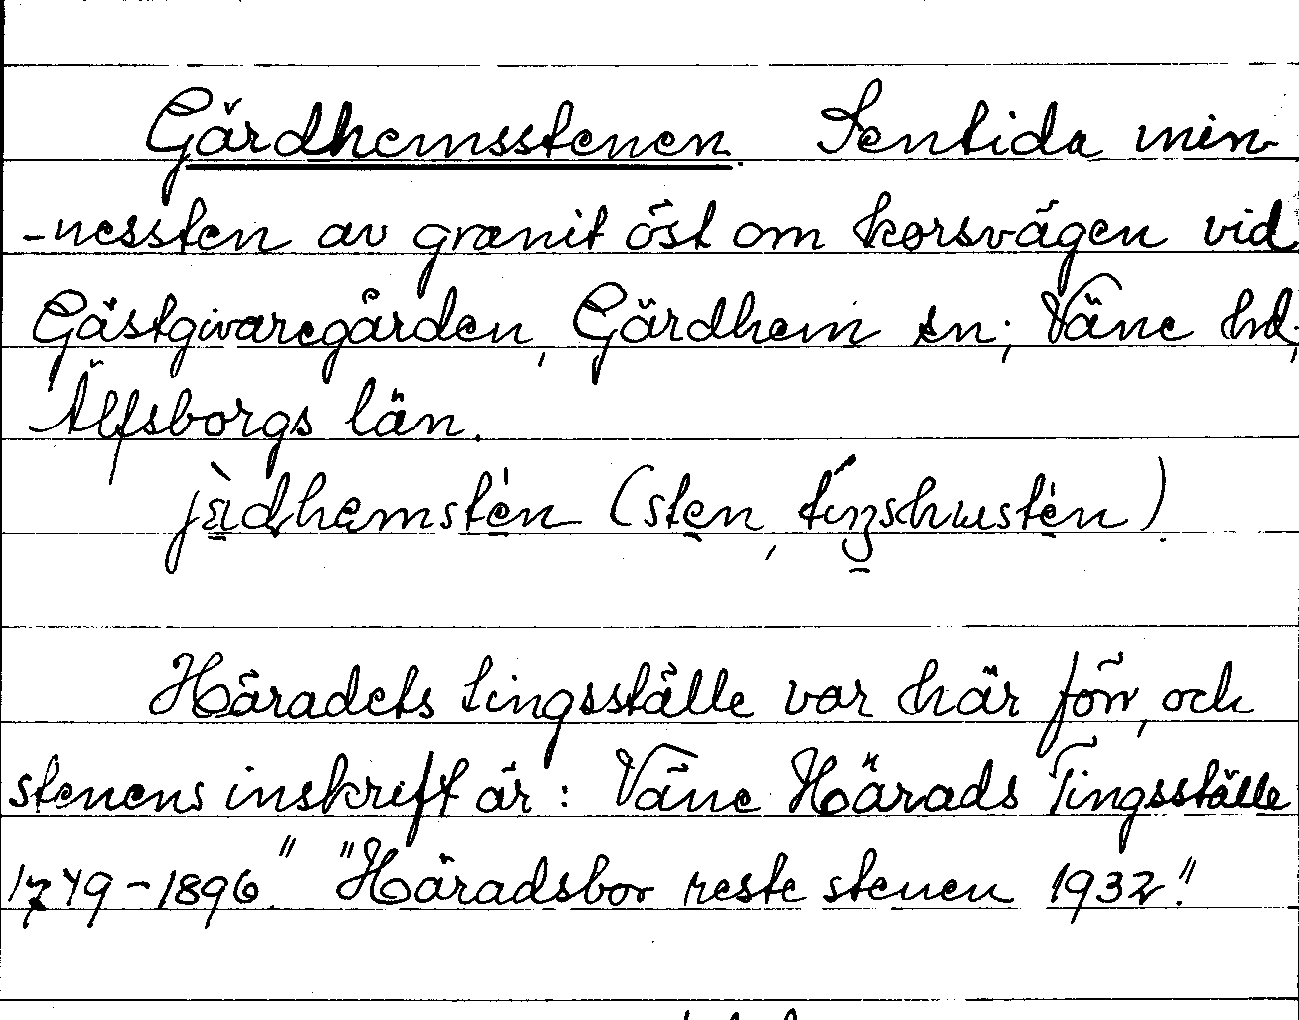 Gärdhemsstenen. Sentida min-
-nessten av granit öst om korsvägen vid
Gästgivaregården, Gärdhem sn; Väne hd;
Älfsborgs län.
jàdhemstén (sten, tiŋshusten).
Häradets tingsställe var här förr, och
stenens inskrift är: Väne Härads Tingsställe
1749-1896." "Häradsbor reste stenen 1932."